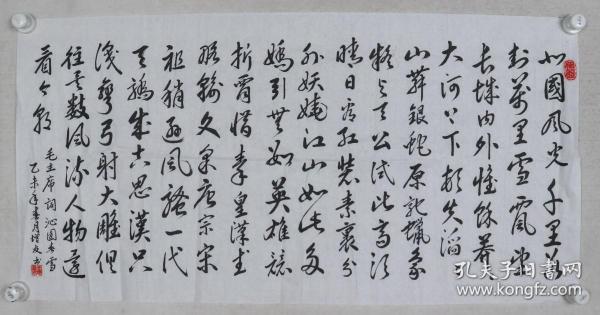 北國風光千里冰
封萬里雪飄望
长城内外惟餘莽莽
大河上下頓失滔滔
山舞銀蛇原馳蠟象
欲与天公試比高須
晴日看红装素裹分
外妖娆江山如此多
嬌引無数英雄競
折腰惜秦皇漢武
略輸文采唐宗宋
祖稍遜風騷一代
天驕成吉思漢只
识彎弓射大雕俱
往矣数風流人物還
看今朝
毛主席詞沁园春雪
乙未年春月增友书
孔夫子旧书网
www.kongfz.com